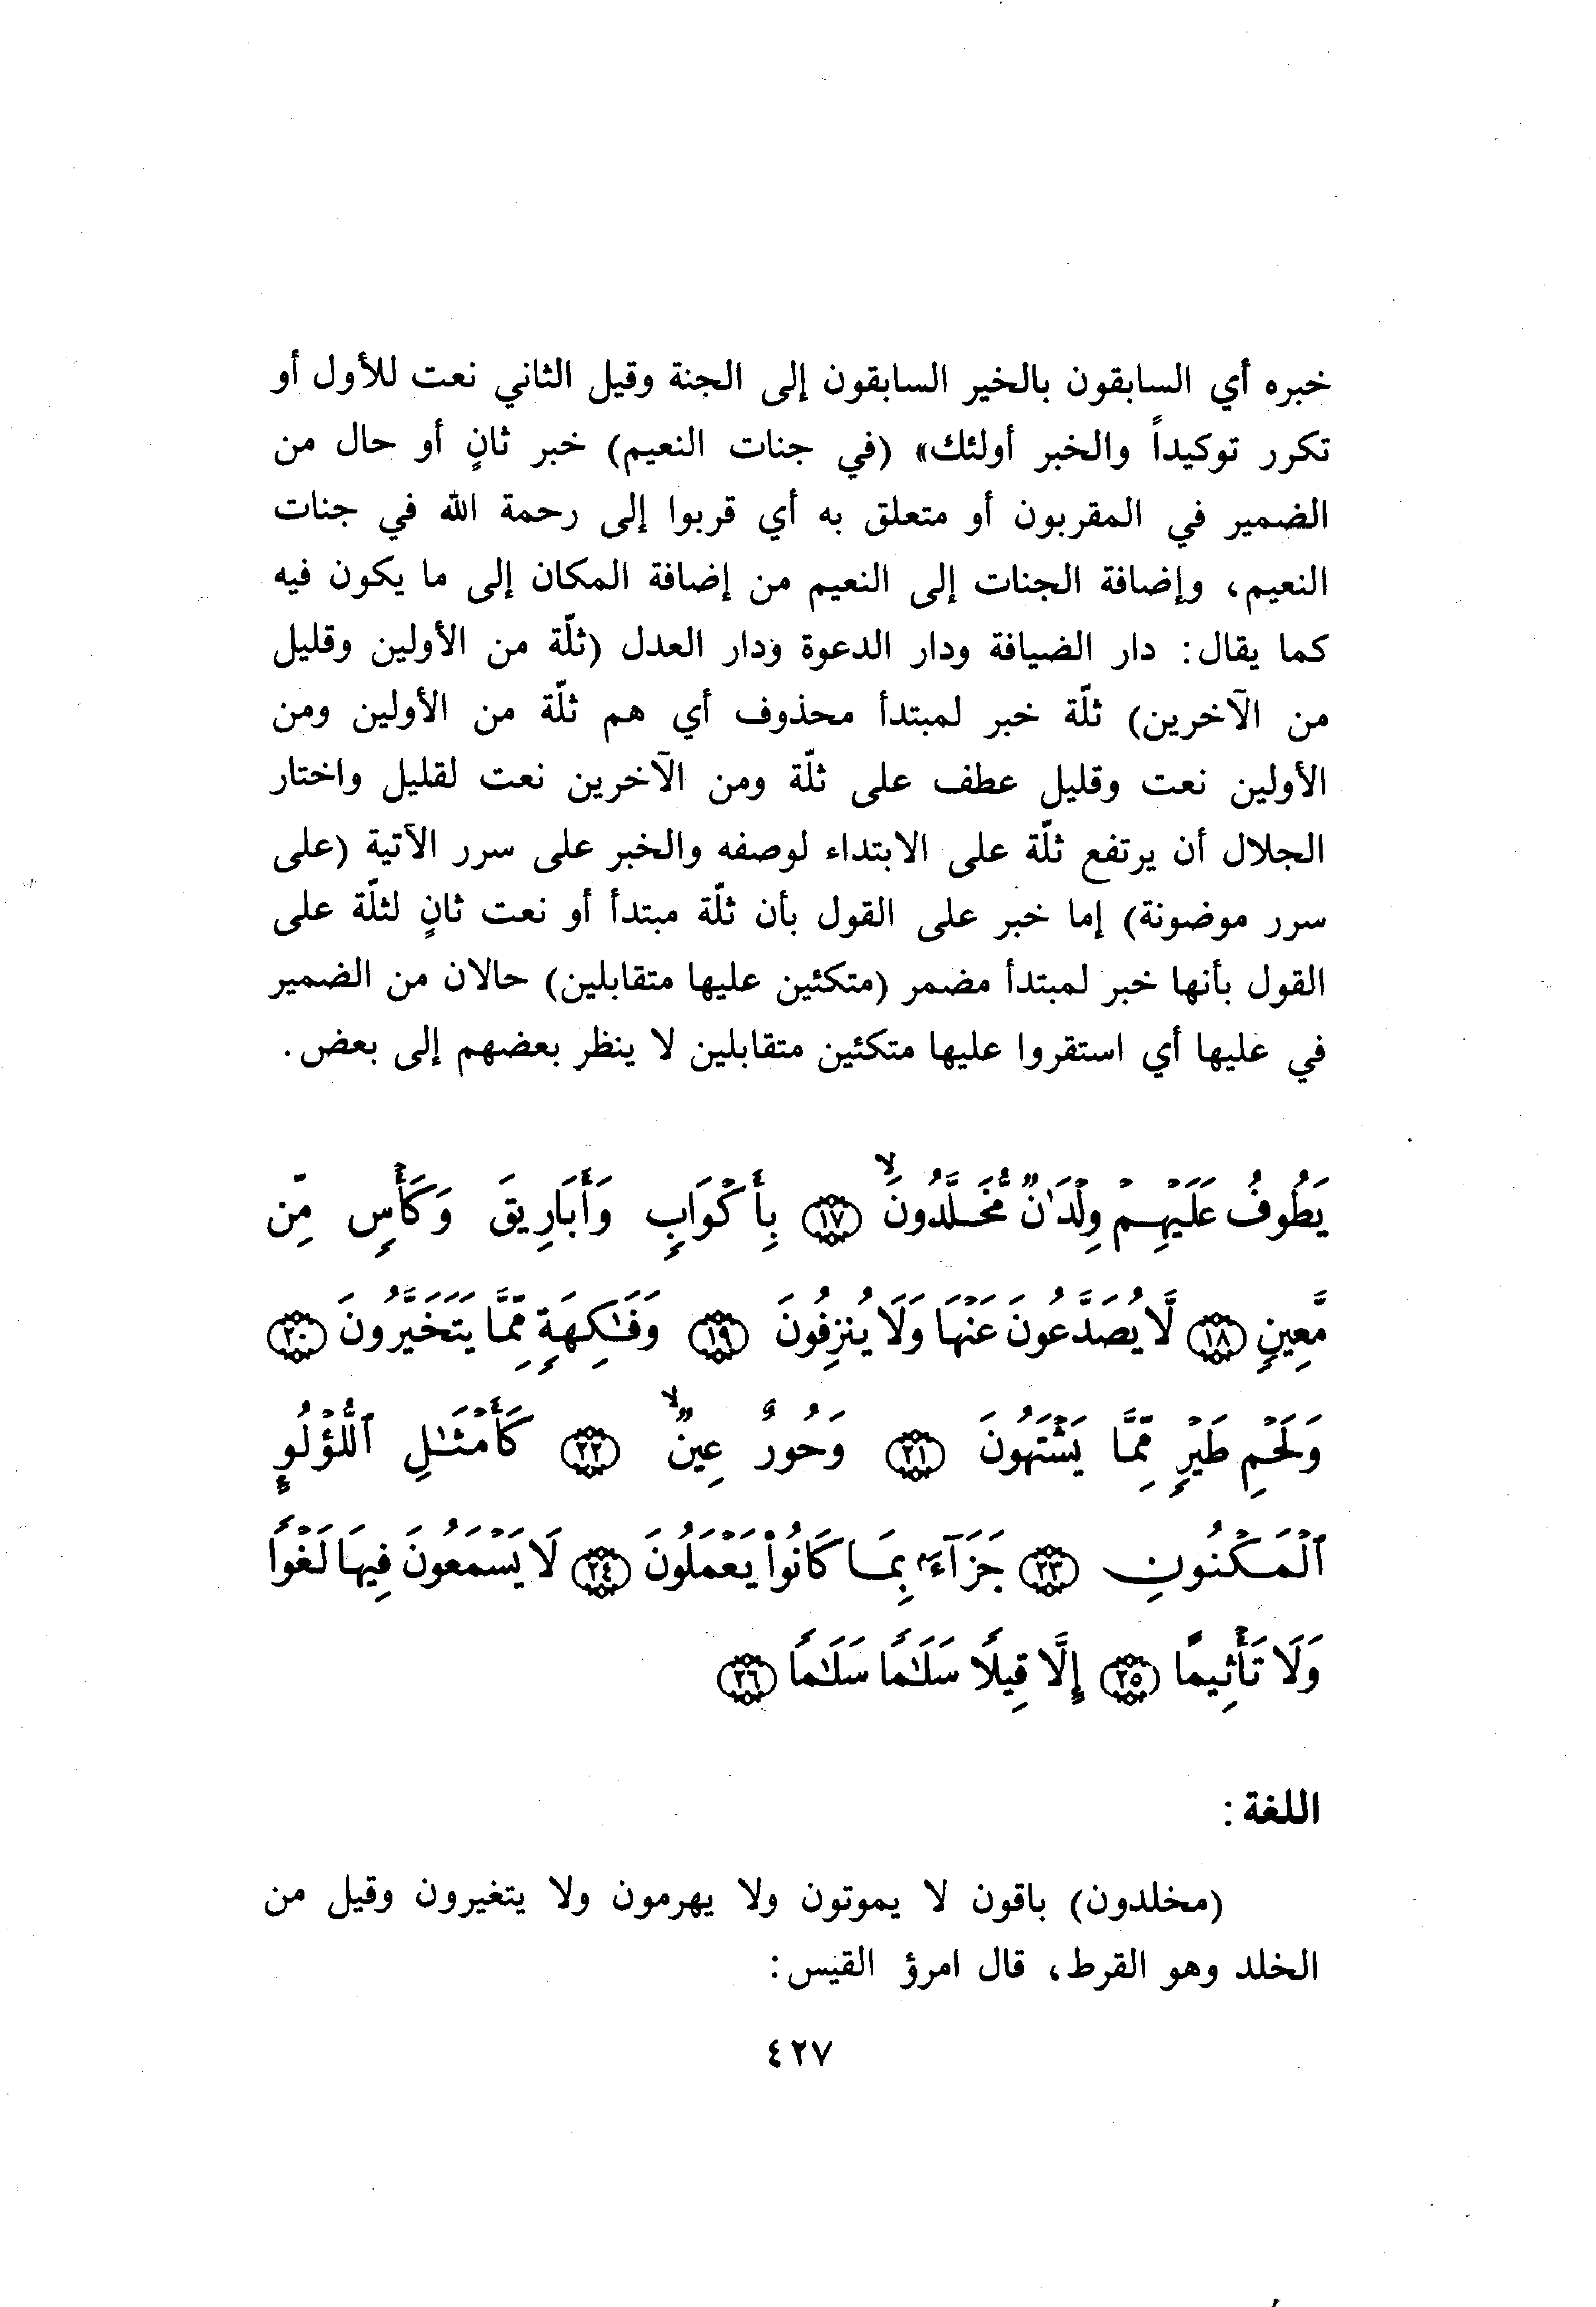 خبره أي السابقون بالخير السابقون إلى الجنة وقيل الثاني نعت للأول أو
تكرر توكيداً والخبر أولئك» (في جنات النعيم) خبر ثانٍ أو حال من
الضمير في المقربون أو متعلق به أي قربوا إلى رحمة الله في جنات
النعيم، وإضافة الجنات إلى النعيم من إضافة المكان إلى ما يكون فيه
كما يقال: دار الضيافة ودار الدعوة ودار العدل (ثلّة من الأولين وقليل
من الآخرين) ثلّة خبر لمبتدأ محذوف أي هم ثلّة من الأولين ومن
الأولين نعت وقليل عطف على ثلّة ومن الآخرين نعت لقليل واختار
الجلال أن يرتفع ثلّة على الابتداء لوصفه والخبر على سرر الآتية (على
سرر موضونة) إما خبر على القول بأن ثلّة مبتدأ أو نعت ثانٍ لثلّة على
القول بأنها خبر لمبتدأ مضمر (متكئين عليها متقابلين) حالان من الضمير
في عليها أي استقروا عليها متكئين متقابلين لا ينظر بعضهم إلى بعض.
يَطُوفُ عَلَيْهِمْ وِلْدَٰنٌ مُّخَلَّدُونَ ۙ ﴿١٧﴾ بِأَكْوَابٍ وَأَبَارِيقَ وَكَأْسٍ مِّن
مَّعِينٍ ﴿١٨﴾ لَّا يُصَدَّعُونَ عَنْهَا وَلَا يُنزِفُونَ ﴿١٩﴾ وَفَٰكِهَةٍ مِّمَّا يَتَخَيَّرُونَ ﴿٢٠﴾
وَلَحْمِ طَيْرٍ مِّمَّا يَشْتَهُونَ ﴿٢١﴾ وَحُورٌ عِينٌ ۙ ﴿٢٢﴾ كَأَمْثَٰلِ ٱللُّؤْلُوِٕ
ٱلْمَكْنُونِ ﴿٢٣﴾ جَزَآءَۢ بِمَا كَانُوا۟ يَعْمَلُونَ ﴿٢٤﴾ لَا يَسْمَعُونَ فِيهَا لَغْوًا
وَلَا تَأْثِيمًا ﴿٢٥﴾ إِلَّا قِيلًا سَلَٰمًا سَلَٰمًا ﴿٢٦﴾
اللغة:
(مخلدون) باقون لا يموتون ولا يهرمون ولا يتغيرون وقيل من
الخلد وهو القرط، قال امرؤ القيس:
٤٢٧